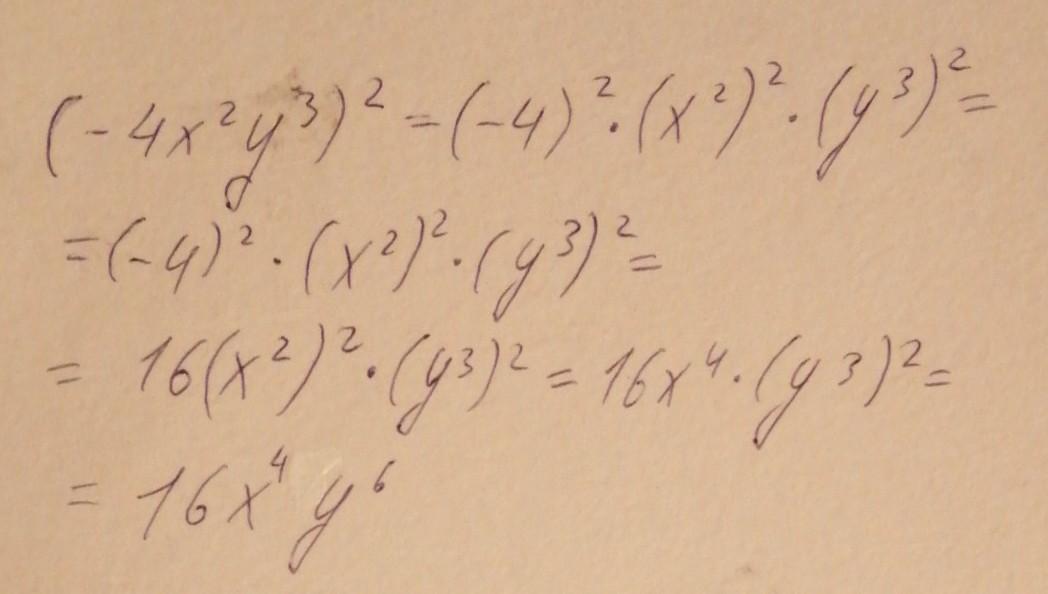 (-4x²y³)² = (-4)² · (x²)² · (y³)² =
= (-4)² · (x²)² · (y³)² =
= 16(x²)² · (y³)² = 16x⁴ · (y³)² =
= 16x⁴y⁶